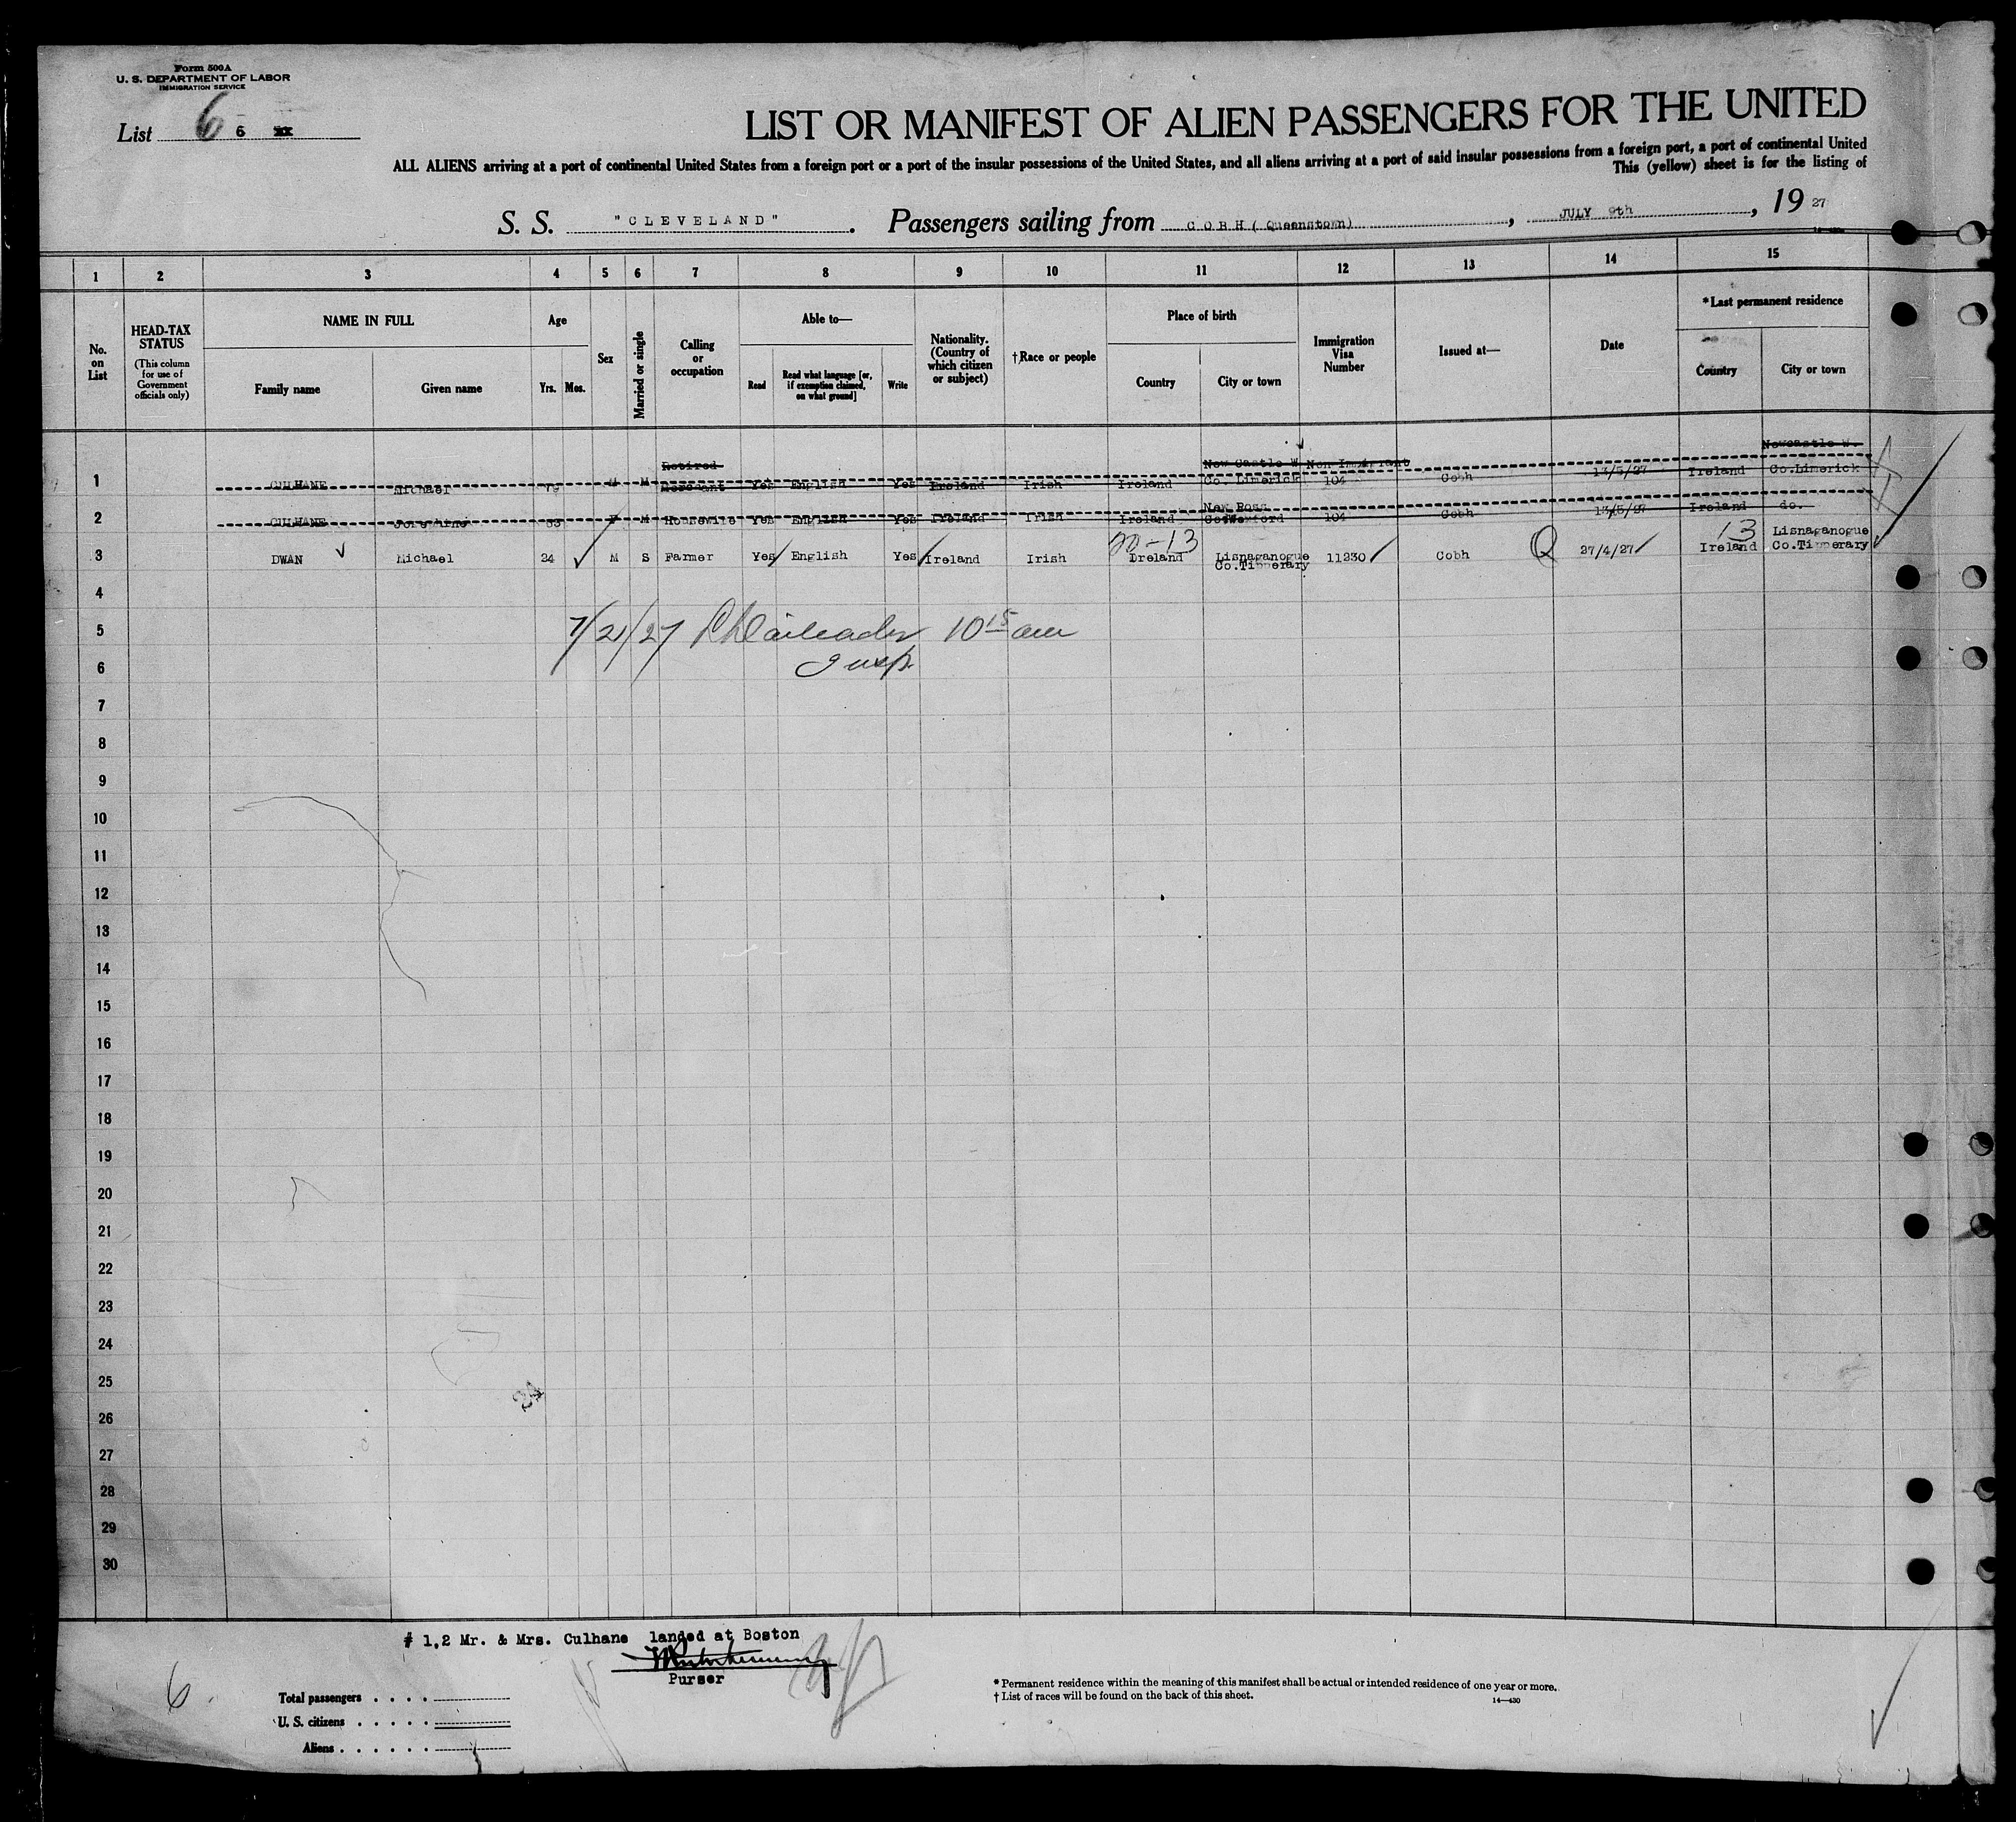 Form 500A
U. S. DEPARTMENT OF LABOR
IMMIGRATION SERVICE
List 6 6
LIST OR MANIFEST OF ALIEN PASSENGERS FOR THE UNITED
ALL ALIENS arriving at a port of continental United States from a foreign port or a port of the insular possessions of the United States, and all aliens arriving at a port of said insular possessions from a foreign port, a port of continental United
This (yellow) sheet is for the listing of
S. S. "CLEVELAND". Passengers sailing from COBH (Queenstown), JULY 9th, 1927
1 2 3 4 5 6 7 8 9 10 11 12 13 14 15
No. on List
HEAD-TAX STATUS
(This column for use of Government officials only)
NAME IN FULL
Family name Given name
Age
Yrs. Mos.
Sex
Married or single
Calling or occupation
Able to—
Read Read what language [or, if exemption claimed, on what ground] Write
Nationality. (Country of which citizen or subject)
†Race or people
Place of birth
Country City or town
Immigration Visa Number
Issued at—
Date
*Last permanent residence
Country City or town
1 CULHANE Michael M M Retired Merchant Yes English Yes Ireland Irish Ireland New Castle W. Co. Limerick Non Immigrant 104 Cobh 13/5/27 Ireland Newcastle W. Co.Limerick
2 CULHANE Josephine 53 F M Housewife Yes English Yes Ireland Irish Ireland New Ross Co.Wexford 104 Cobh 13/5/27 Ireland do.
20-13 13
3 DWAN Michael 24 M S Farmer Yes English Yes Ireland Irish Ireland Lisnaganogue Co.Tipperary 11230 Cobh 27/4/27 Ireland Lisnaganogue Co.Tipperary
4
5 7/21/27 10 15 am
6 Insp.
7
8
9
10
11
12
13
14
15
16
17
18
19
20
21
22
23
24
25
24
26
27
28
29
30
# 1,2 Mr. & Mrs. Culhane landed at Boston
Purser
6
Total passengers . . . .
U. S. citizens . . . . .
Aliens . . . . . .
* Permanent residence within the meaning of this manifest shall be actual or intended residence of one year or more.
† List of races will be found on the back of this sheet.
14—430